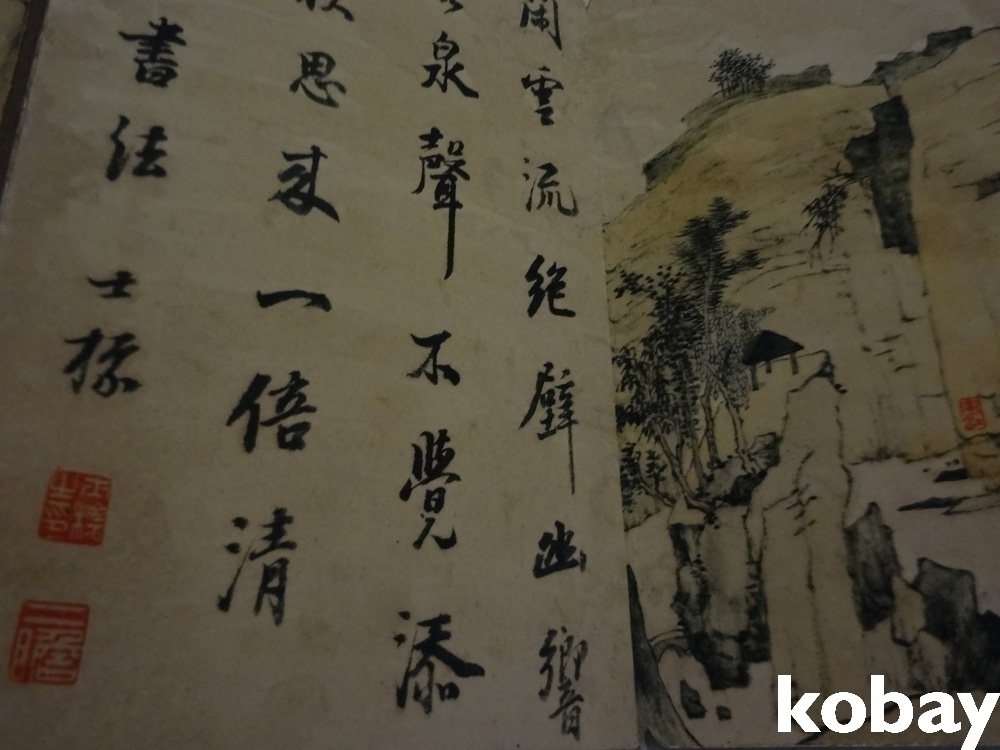 雲流絶壁幽響
泉聲不覺添
思来一倍清
書法 士標
二瞻
kobay